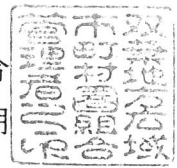 双葉地方広域
市町村圏組合
管理者之印